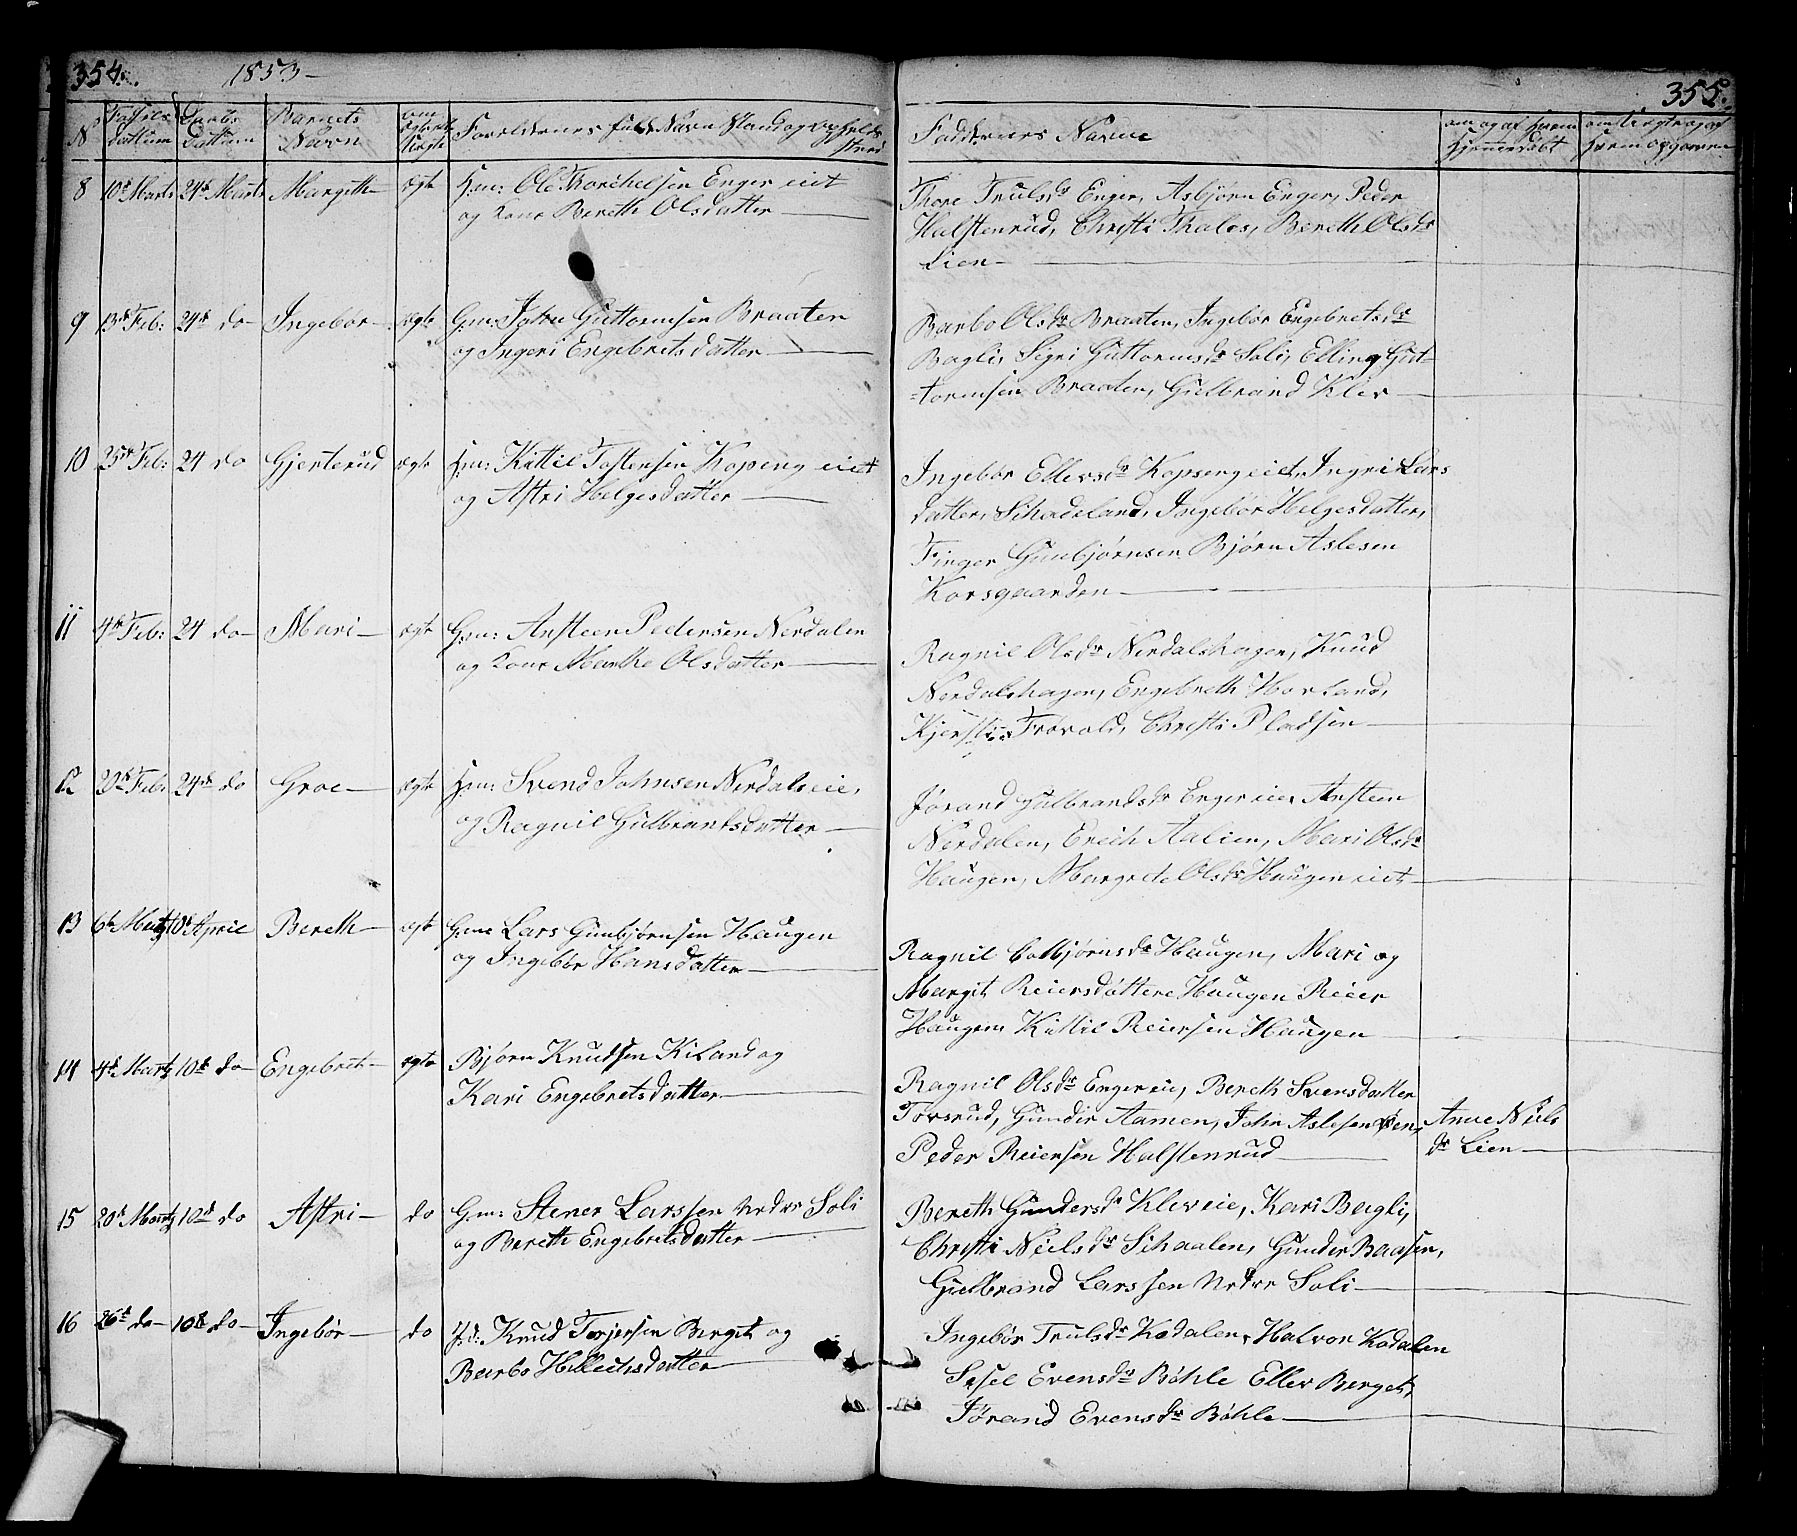 354. 1853 –
355.
N
Fødsels
Dattum
Daabs
Dattum
Barnets
Navn
om
ægte eller
uægte
Forældrenes fulde Navn Stand og Opholds
sted
Faddernes Navne
om og af hvem
hjemmedøbt
8 10de Marts 24de Marts Margith ægte Gm: Ole Thorchelsen Enger eiet
og Kone Bereth Olsdatter –
Thore Trulsdr Enger, Asbjørn Enger, Peder
Halstenrud, Christi Thalos, Bereth Olsdr
Lien –
9 13de Feb: 24de do – Ingebør – ægte Gm: Guttormsen Braaten
og Ingeri Engebretsdatter –
Barbo Olsdr Braaten, Ingebør Engebretsdr
Bagli, Sigri Guttormsdr Soli, Elling Gut-
-tormsen Braaten, Gulbrand Klev –
10 25de Feb: 24 do Gjerterud ægte Gm: Kittil Tostensen Kopseng eiet
og Astri Helgesdatter –
Ingebør Ellevsdr Kopsengeiet, Ingri Lars
datter, Sihadeland, Ingebør Helgesdatter,
Finger Gunbjørnsen Bjørn Aslesen
Korsgaarden –
11 4de Feb: 24 do – Mari – ægte Gm: Ansteen Pedersen Nerdalen
og Kone Marthe Olsdatter –
Ragnil Olsdr Nerdalshagen, Knud
Nerdalshagen, Engebreth Hovland,
Kjersti Trovald, Christi Pladsen –
12 20de Feb: 24de do Groe – ægte Gm: Svend Johnsen Nerdals eie,
og Ragnil Gulbrantsdatter –
Jørand Gulbrandsdr Engereie, Ansteen
Nerdalen, Erich Aalien, Mari Olsdr
Haugen, Margrete Olsdr Haugen eiet –
13 6te Martz 10de April Bereth – ægte Gm: Lars Gunbjørnsen Haugen
og Ingebør Hansdatter –
Ragnil Colbjørnsdr Haugen, Mari og
Margit Reiersdøttere Haugen Reier
Haugen, Kittil Reiersen Haugen –
14 4de Martz 10de do – Engebret – ægte Bjørn Knudsen Kiland og
Kari Engebretsdatter –
Ragnil Olsdr Engereie, Bereth Svensdatter
Tovsrud, Gundir Aamen, John Aslesen Øen,
Peder Reiersen Halstenrud –
Anne Niels
dr Lien –
15 20de Martz 10de do Astri – do Gm: Stener Larssen Nedre Soli
og Bereth Engebretsdatter –
Bereth Gundersdr Kleveie, Kari Bagli,
Christi Nielsdr Sihaalen, Gunder Baasen,
Gulbrand Larssen Nedre Soli –
16 26de do – 10de do – Ingebør – do Knud Torjersen Berget og
Barbo Hellechsdatter –
Ingebør Trulsdr Kodalen, Halvor Kodalen
Sesel Evensdr Bøhle Ellev Berget,
Jørand Evensdr Bøhle –